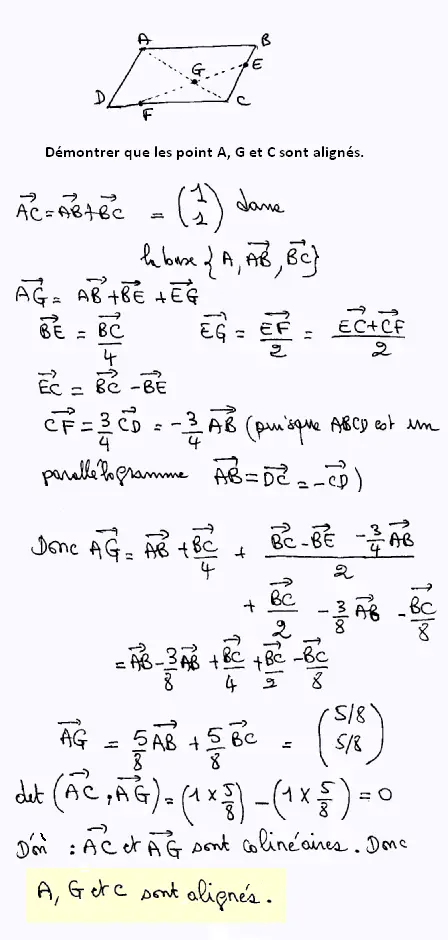 A
B
E
G
D
F
C
Démontrer que les point A, G et C sont alignés.
AC⃗ = AB⃗ + BC⃗ = (1 1) dans
la base { A, AB⃗, BC⃗ }
AG⃗ = AB⃗ + BE⃗ + EG⃗
BE⃗ = BC⃗/4   EG⃗ = EF⃗/2 = (EC⃗ + CF⃗)/2
EC⃗ = BC⃗ - BE⃗
CF⃗ = 3/4 CD⃗ = -3/4 AB⃗ (puisque ABCD est un
parallélogramme AB⃗ = DC⃗ = -CD⃗)
Donc AG⃗ = AB⃗ + BC⃗/4 + (BC⃗ - BE⃗ - 3/4 AB⃗)/2
+ BC⃗/2 - 3/8 AB⃗ - BC⃗/8
= AB⃗ - 3/8 AB⃗ + BC⃗/4 + BC⃗/2 - BC⃗/8
AG⃗ = 5/8 AB⃗ + 5/8 BC⃗ = (5/8 5/8)
det (AC⃗, AG⃗) = (1 × 5/8) - (1 × 5/8) = 0
D'où : AC⃗ et AG⃗ sont colinéaires. Donc
A, G et C sont alignés.